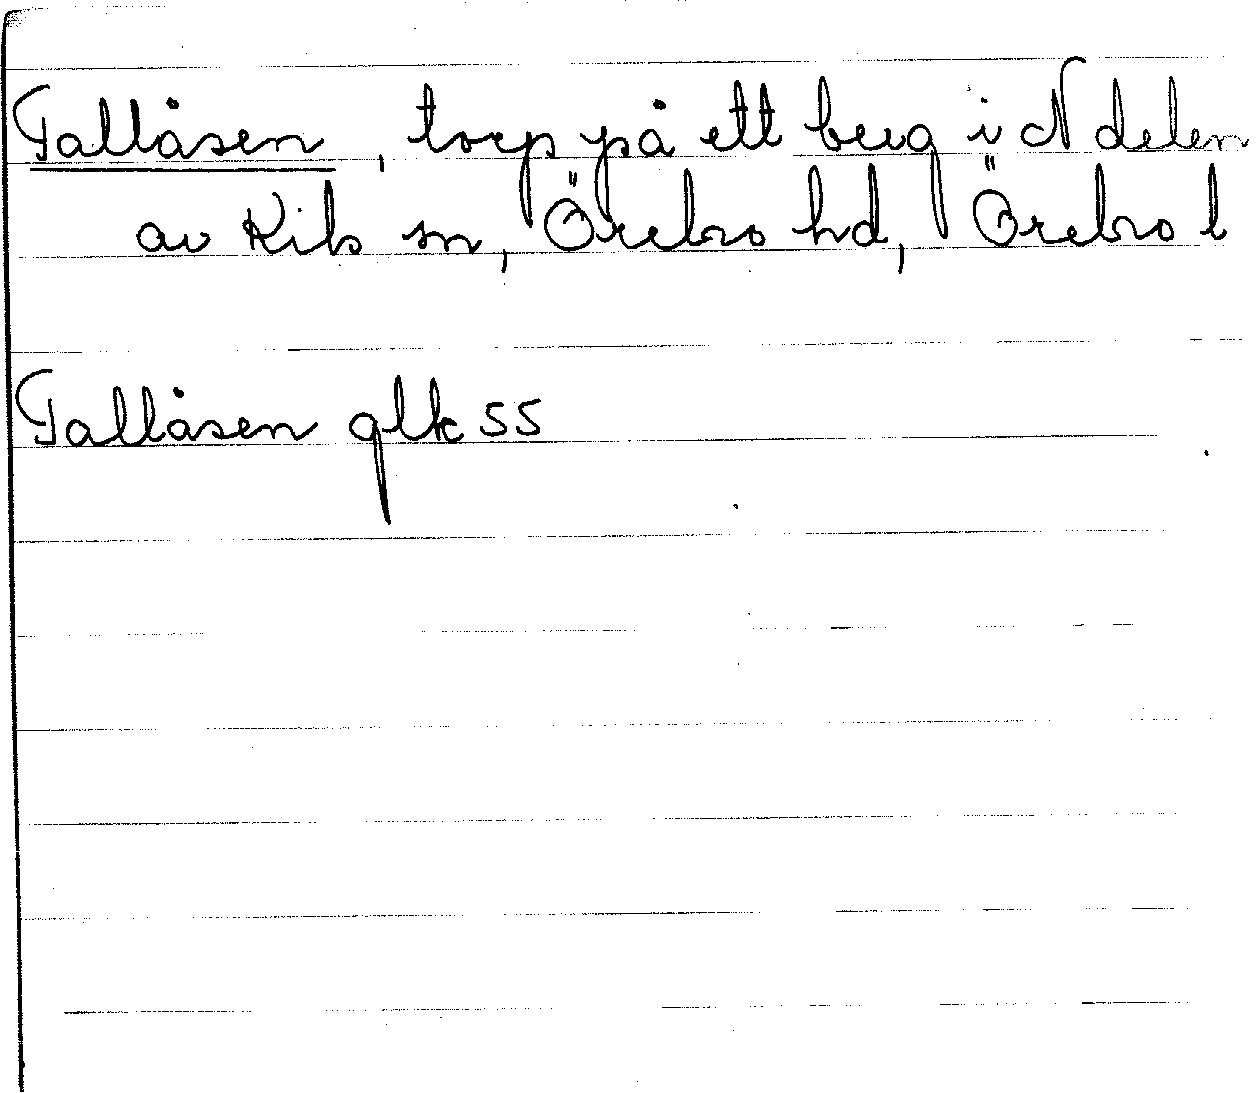 Tallåsen, torp på ett berg i N delen
av Kils sn, Örebro hd, Örebro l
Tallåsen glk 55